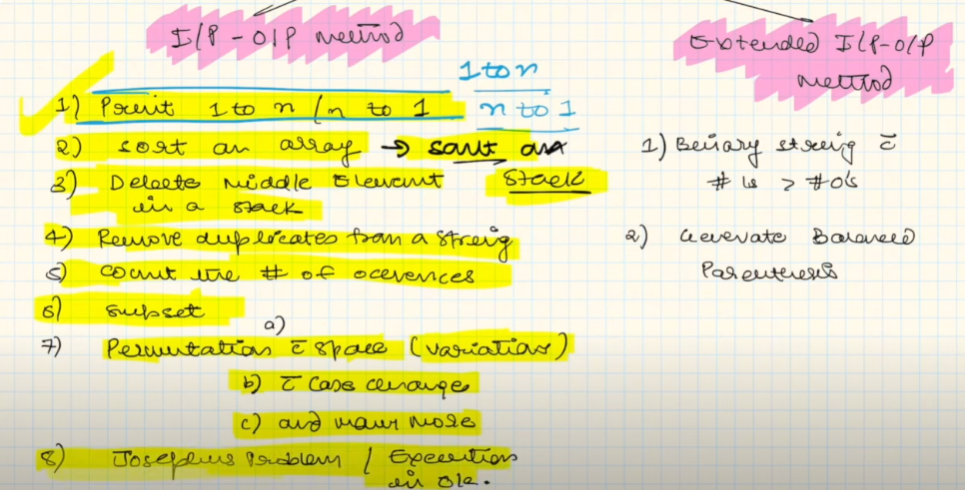 I/P - O/P Method
1 to n
n to 1
1) Print 1 to n / n to 1
2) sort an array → sort an
stack
3) Delete Middle Element
in a stack
4) Remove duplicates from a string
5) count the # of occurences
6) Subset
7) a) Permutation c̄ space (variation)
b) c̄ case change
c) and many more
8) Josephus Problem / Execution
in
Extended I/P-O/P
Method
1) Binary string c̄
# 1s > # 0's
2) Generate Balanced
Parenthesis